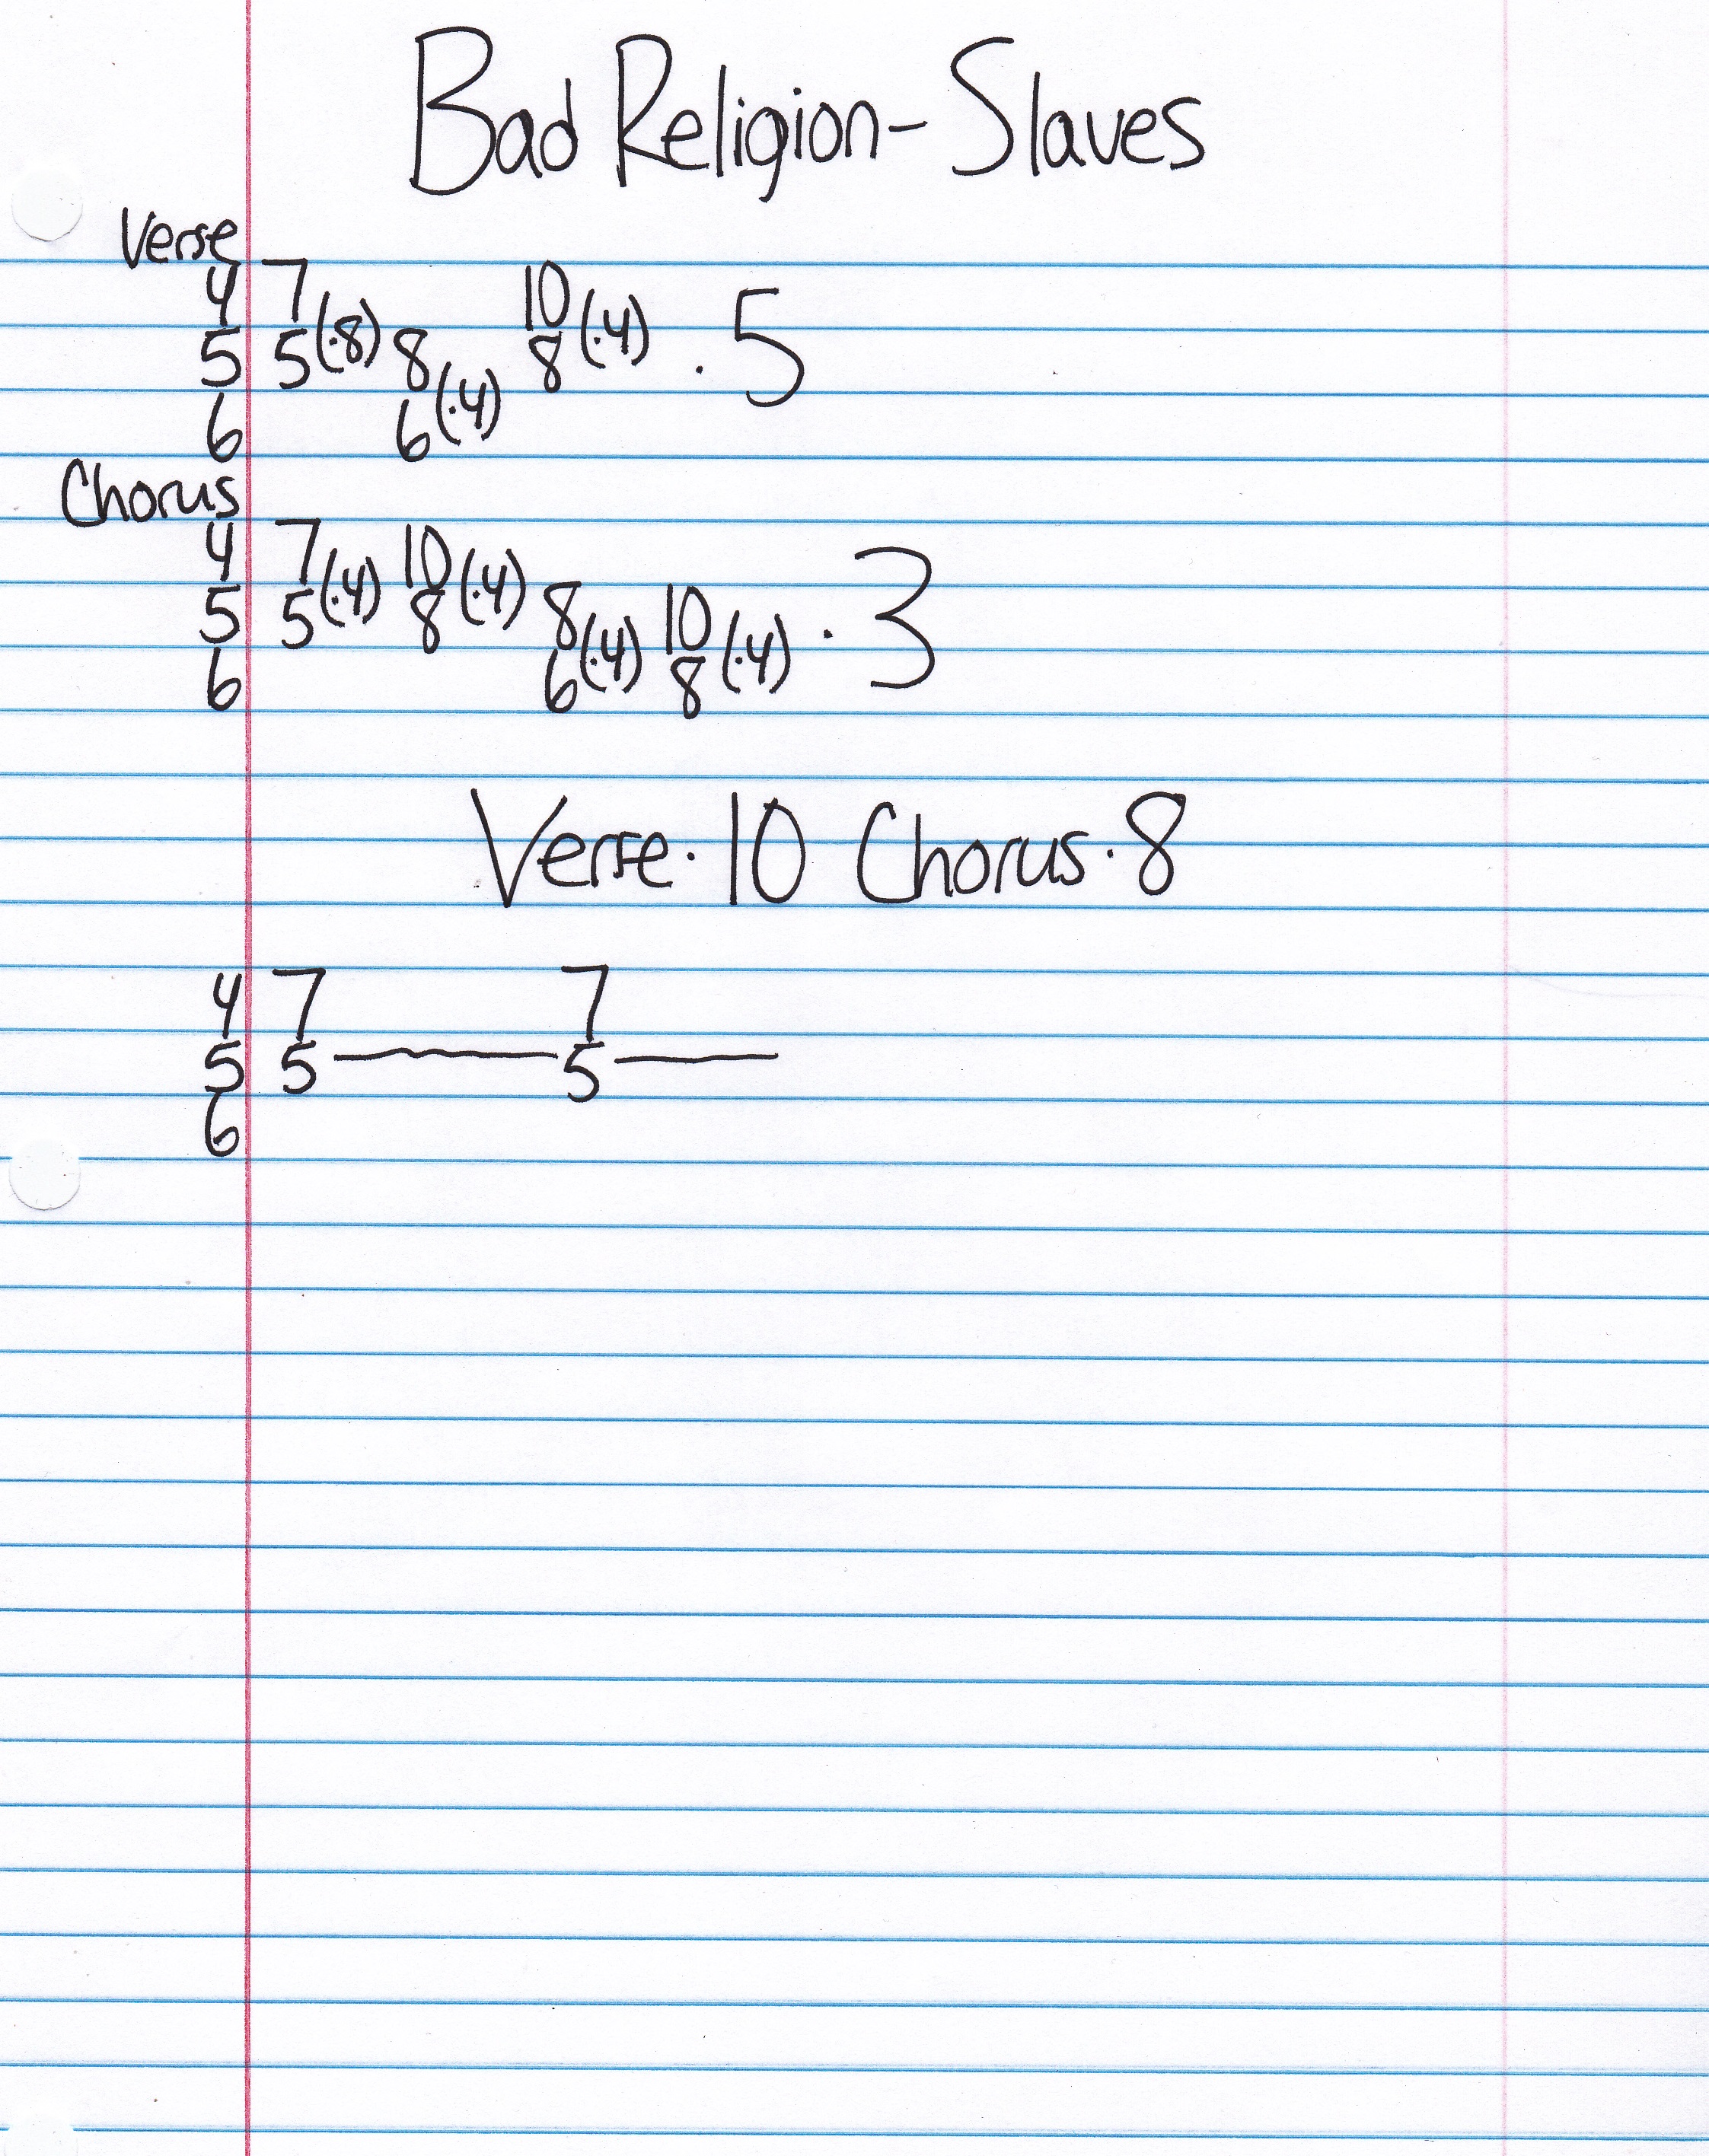 Bad Religion - Slaves
Verse
4 7 10
5 5(·8) 8 8(·4) ·5
6 6(·4)
Chorus
4 7 10
5 5(·4) 8(·4) 8 10 ·3
6 6(·4) 8(·4)
Verse·10 Chorus·8
4 7 7
5 5 5
6